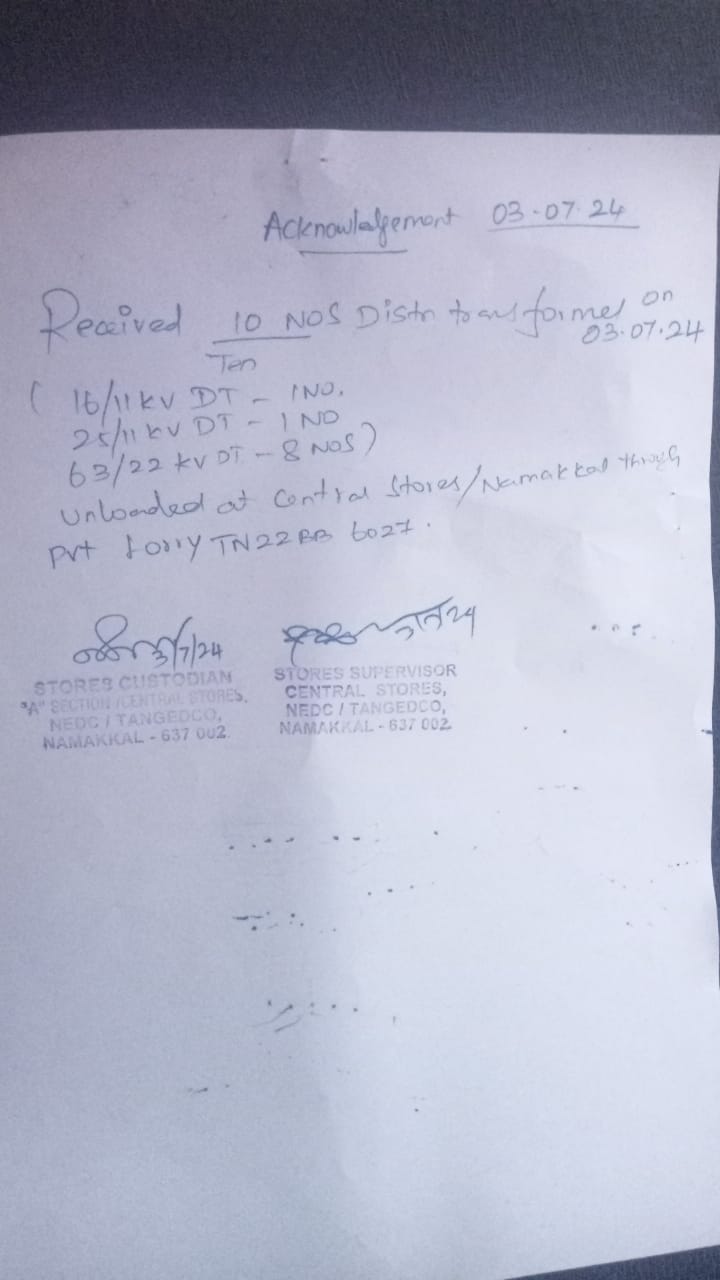 Acknowledgement 03-07-24
Received 10 NOS Distn transformer on 03.07.24
Ten
( 16/11 KV DT - 1 NO.
25/11 KV DT - 1 NO
63/22 KV DT - 8 NOS )
Unloaded at Central Stores/Namakkal through
Pvt Lorry TN22BB 6027.
3/7/24
STORES CUSTODIAN
"A" SECTION /CENTRAL STORES,
NEDC / TANGEDCO,
NAMAKKAL - 637 002.
STORES SUPERVISOR
CENTRAL STORES,
NEDC / TANGEDCO,
NAMAKKAL - 637 002